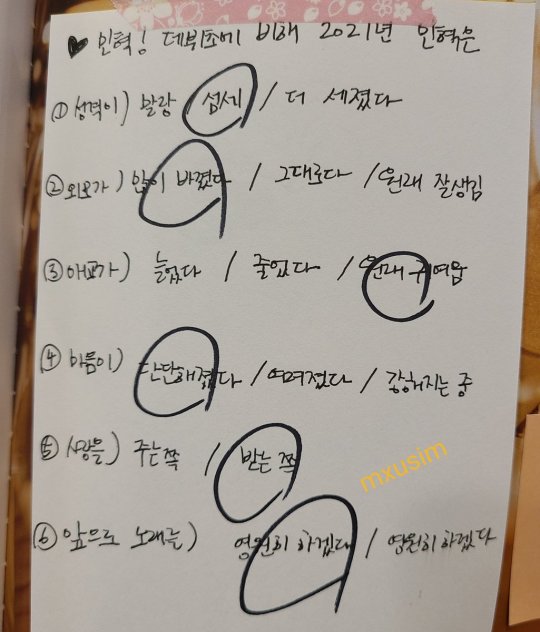 ♥ 인혁! 데뷔초에 비해 2021년 인혁은
① 성격이) 말랑 섬세 / 더 세졌다
② 외모가) 많이 바꼈다 / 그대로다 / 원래 잘생김
③ 애교가) 늘었다 / 줄었다 / 원래 귀여움
④ 마음이) 단단해졌다 / 여려졌다 / 강해지는 중
⑤ 사랑을) 주는쪽 / 받는 쪽
mxusim
⑥ 앞으로 노래를) 영원히 하겠다 / 영원히 하겠다